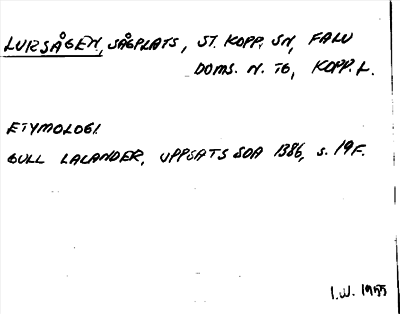 LURSÅGEN, SÅGPLATS, ST. KOPP. SN, FALU
DOMS. N. TG, KOPP. L.
ETYMOLOGI
GULL LALANDER, UPPSATS SOA 1386, s. 19F.
I.W. 1955